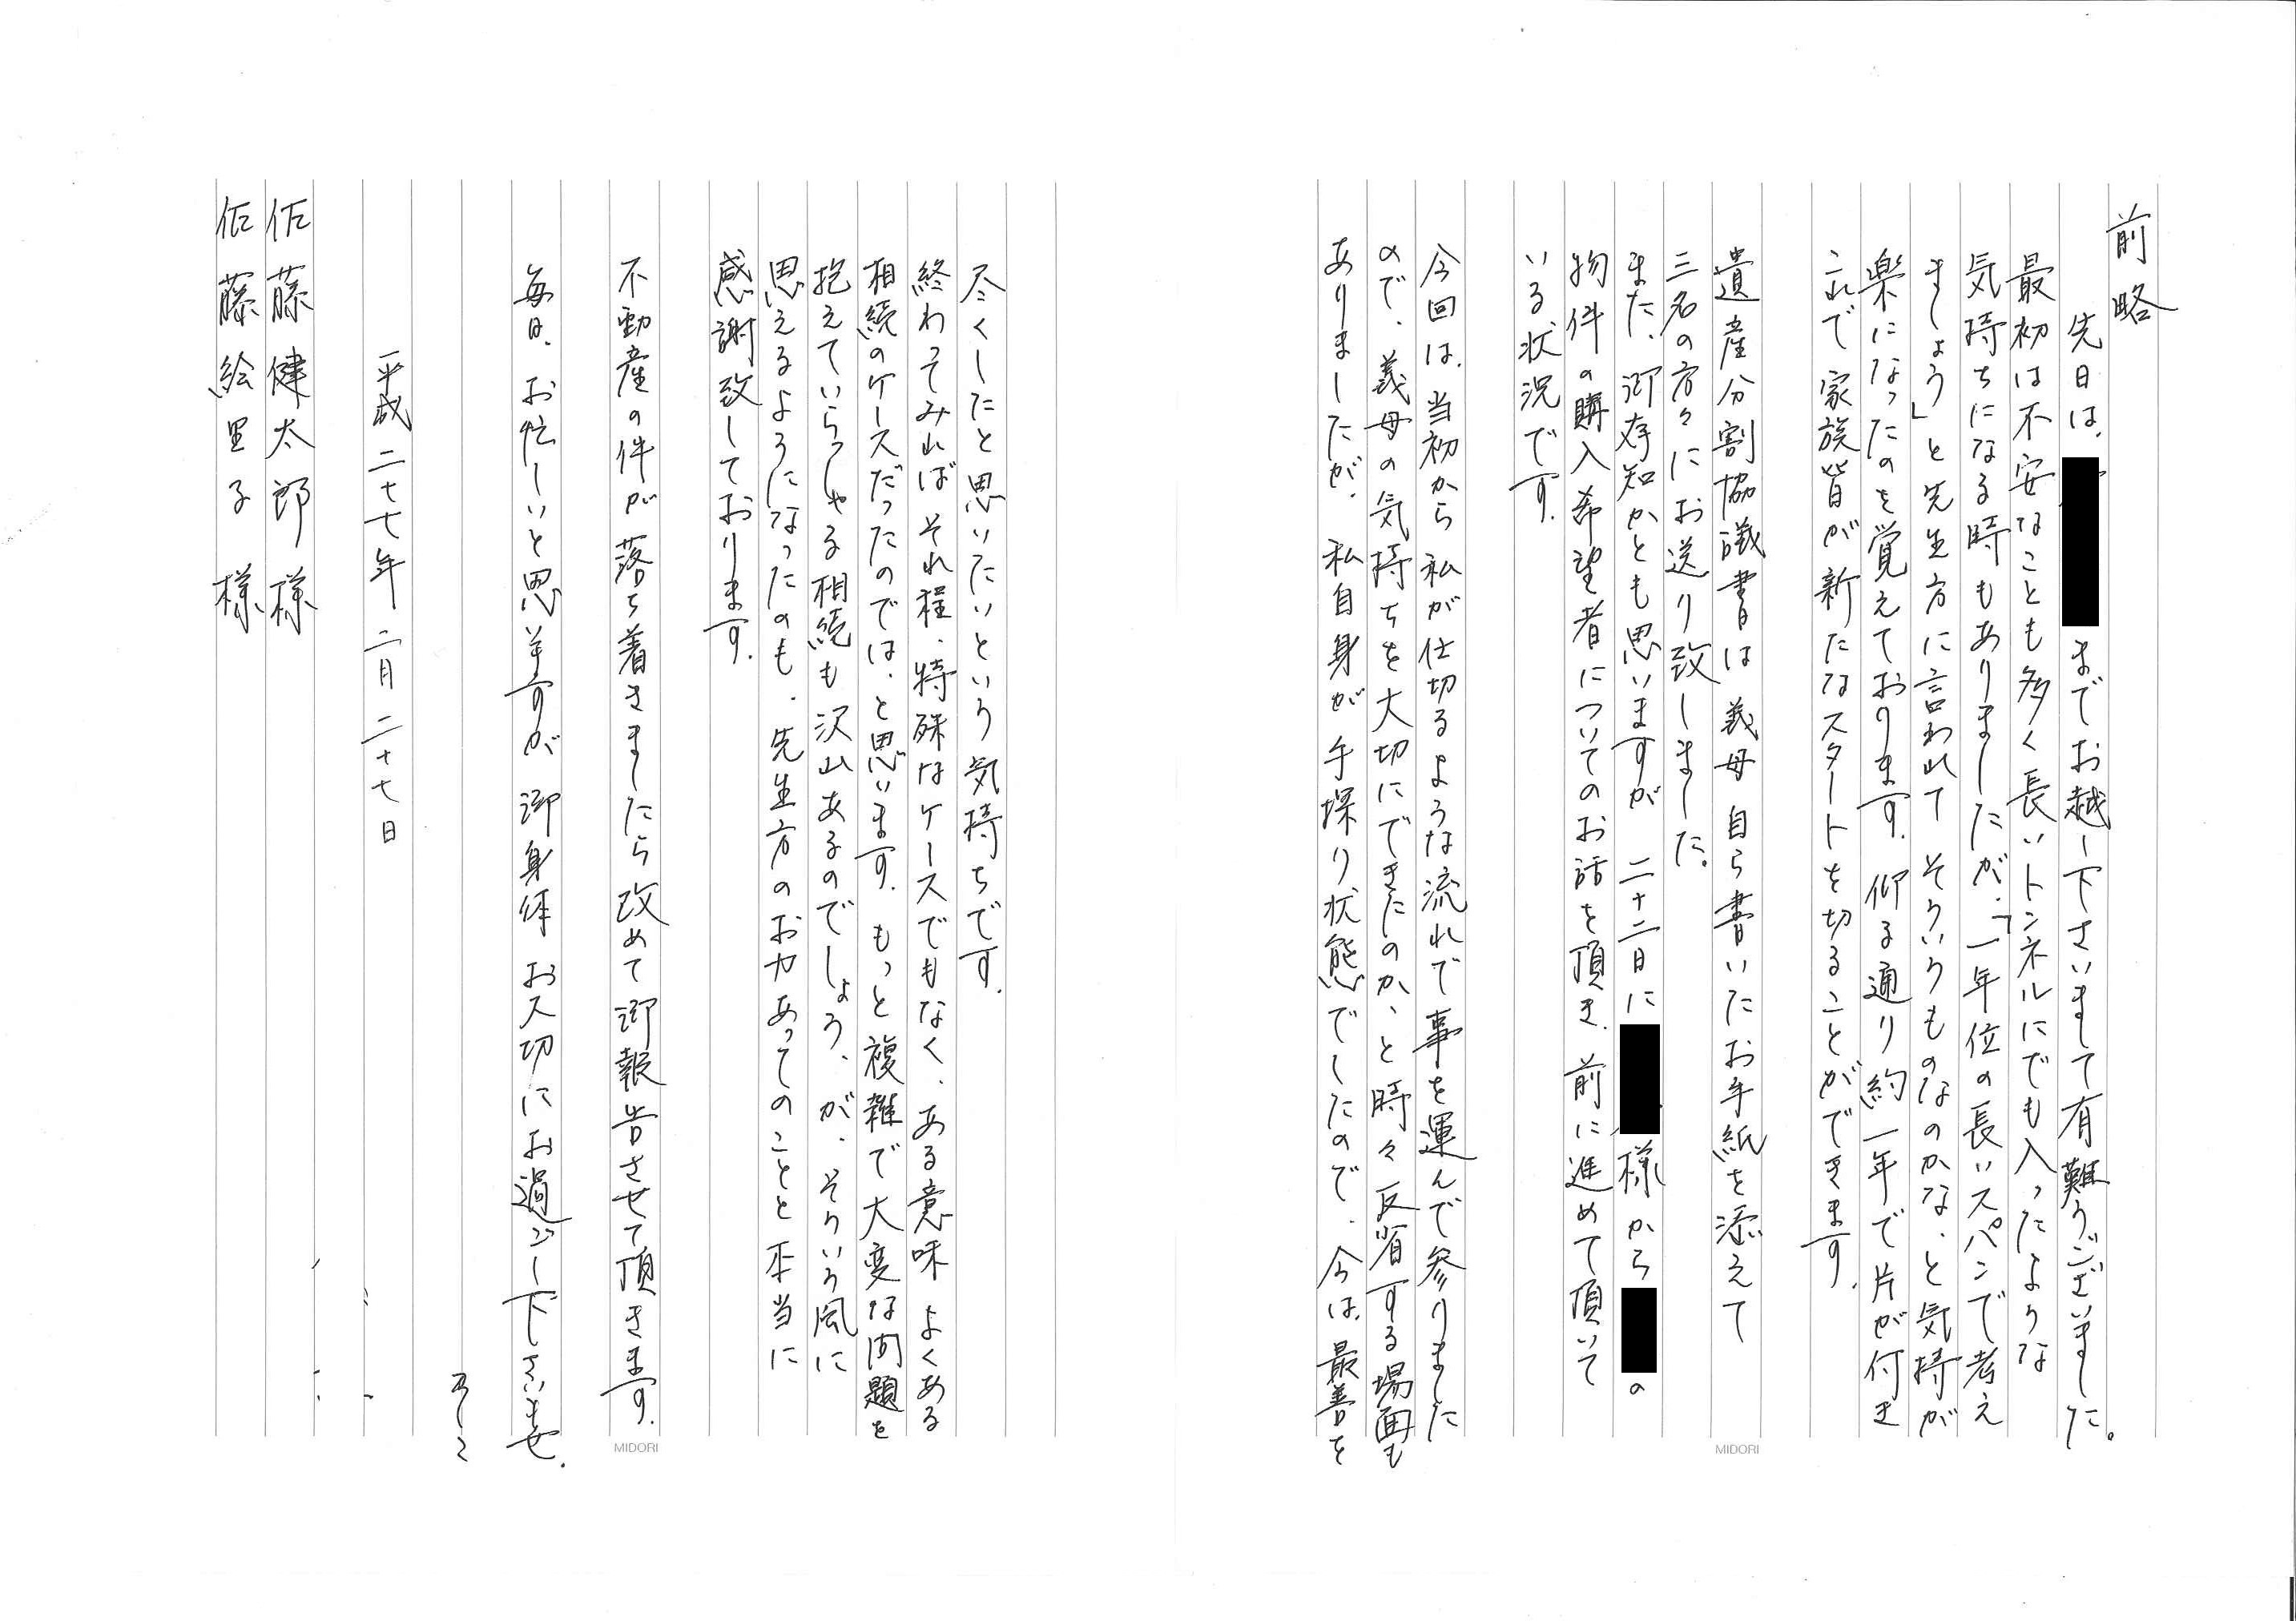 前略
先日は、
までお越し下さいまして有難うございました。
最初は不安なことも多く長いトンネルにでも入ったような
気持ちになる時もありましたが、「一年位の長いスパンで考え
ましょう」と先生方に言われて そういうものなのかな、と気持が
楽になったのを覚えております。仰る通り約一年で片が付き
これで家族皆が新たなスタートを切ることができます。
遺産分割協議書は義母自ら書いたお手紙を添えて
三名の方々にお送り致しました。
また、御存知かとも思いますが 二十二日に
様から
の
物件の購入希望者についてのお話を頂き、前に進めて頂いて
いる状況です。
今回は、当初から私が仕切るような流れで事を運んで参りました
ので、義母の気持ちを大切にできたのか、と時々反省する場面も
ありましたが、私自身が手探り状態でしたので、今は、最善を
MIDORI
尽くしたと思いたいという気持ちです。
終わってみればそれ程、特殊なケースでもなく、ある意味よくある
相続のケースだったのでは、と思います。もっと複雑で大変な問題を
抱えていらっしゃる相続も沢山あるのでしょう、が、そういう風に
思えるようになったのも、先生方のお力あってのことと本当に
感謝致しております。
不動産の件が落ち着きましたら改めて御報告させて頂きます。
毎日、お忙しいと思いますが 御身体お大切にお過ごし下さいませ。
平成二十七年 二月二十七日
佐藤健太郎様
佐藤絵里子様
MIDORI